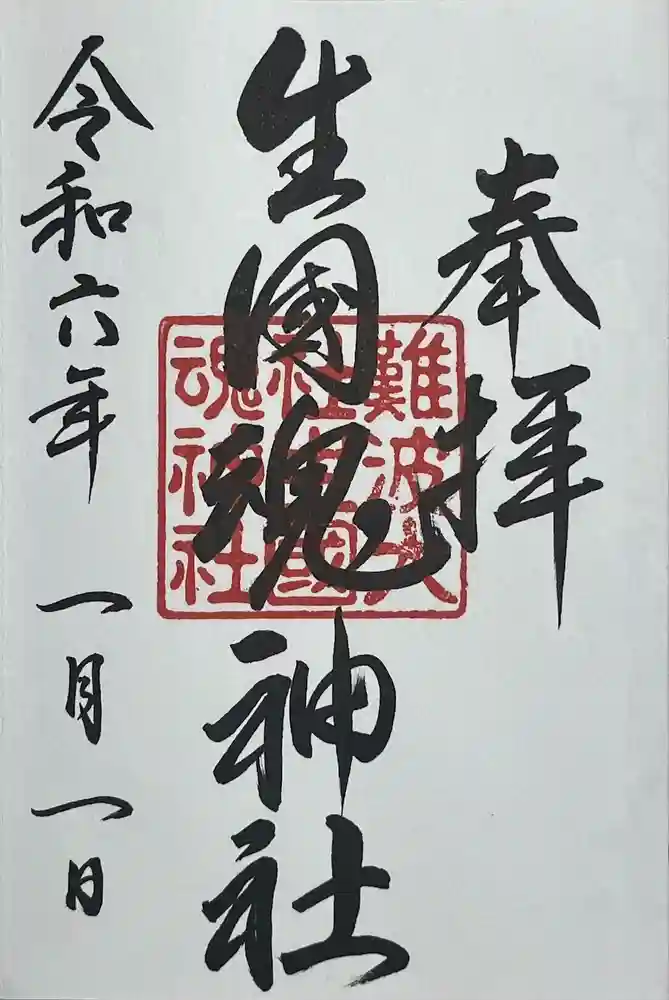 奉拝
生國魂神社
難波大
社生國
魂神社
令和六年 一月一日